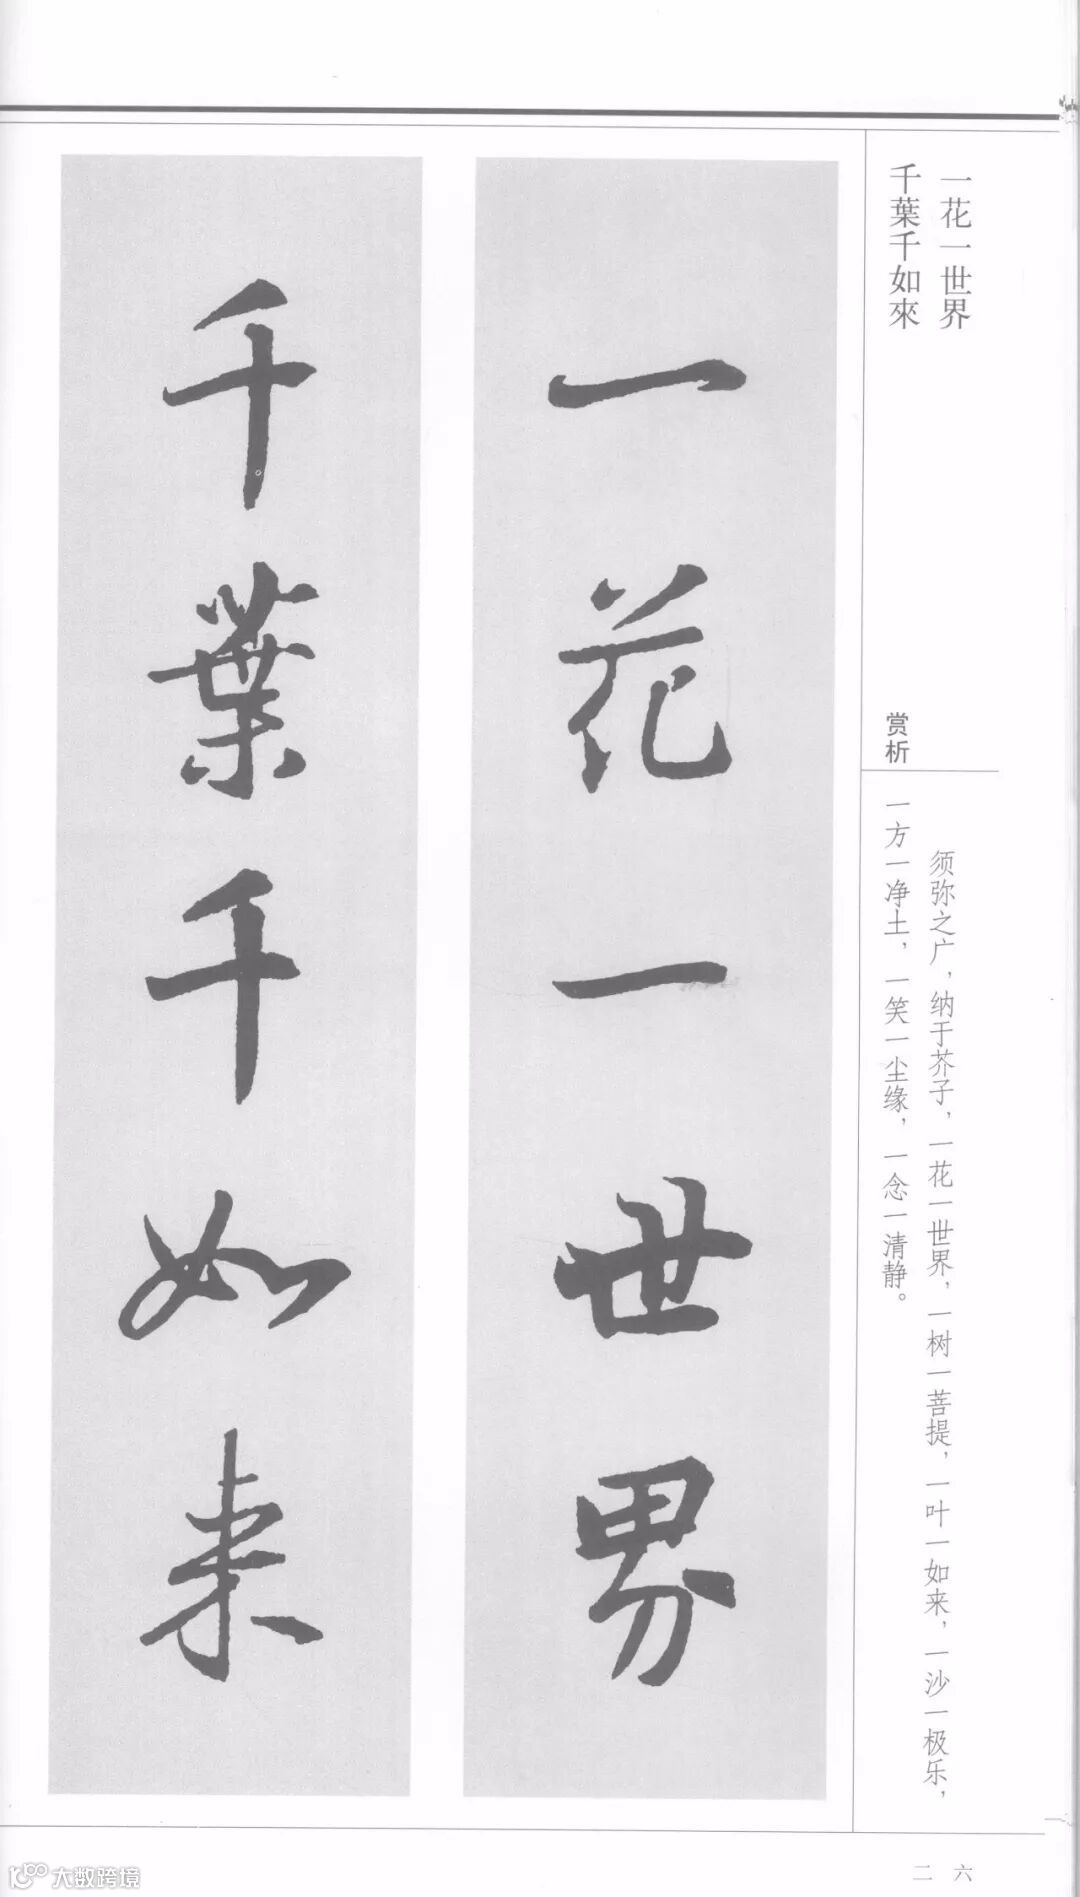 一花一世界
千葉千如來
赏析
须弥之广，纳于芥子，一花一世界，一树一菩提，一叶一如来，一沙一极乐，
一方一净土，一笑一尘缘，一念一清静。
一花一世界
千葉千如来
二六
大数跨境